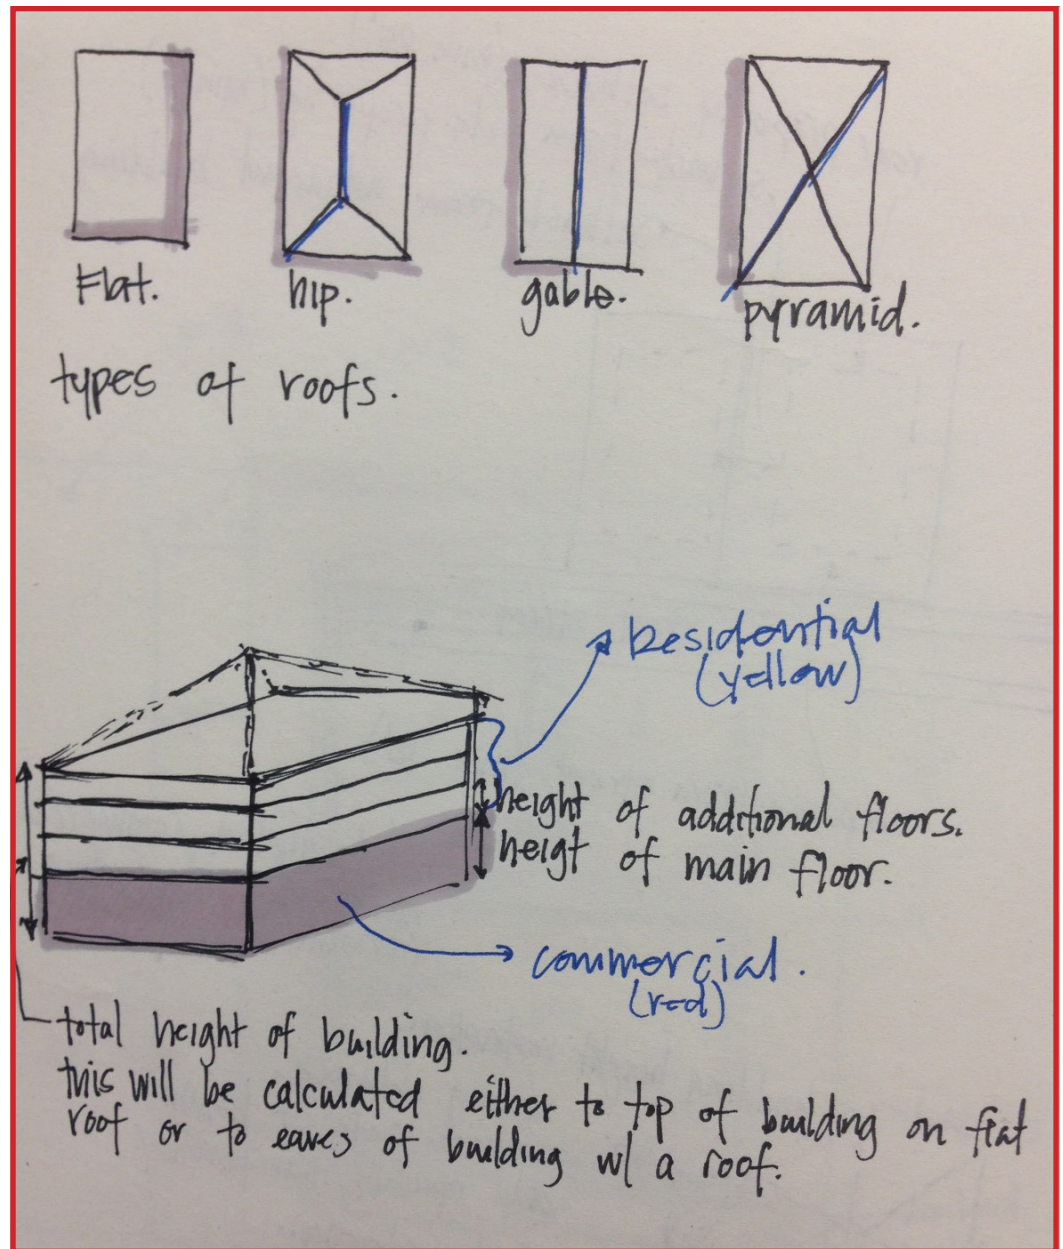 Flat.
hip.
gable.
pyramid.
types of roofs.
Residential
(yellow)
height of additional floors.
heigt of main floor.
commercial.
(red)
total height of building.
this will be calculated either to top of building on flat
roof or to eaves of building w/ a roof.